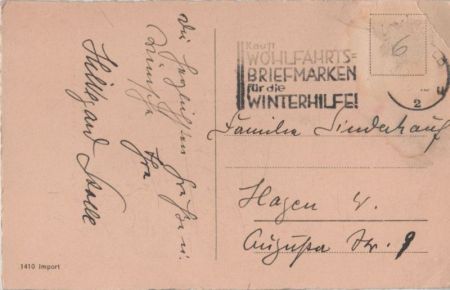 Die herzlichsten Grüße u.
Wünsche
Ihre
Hildegard
Kauft
WOHLFAHRTS=
BRIEFMARKEN
für die
WINTERHILFE!
6
2
e
Familie
Hagen W.
Augusta Str. 9
1410 Import